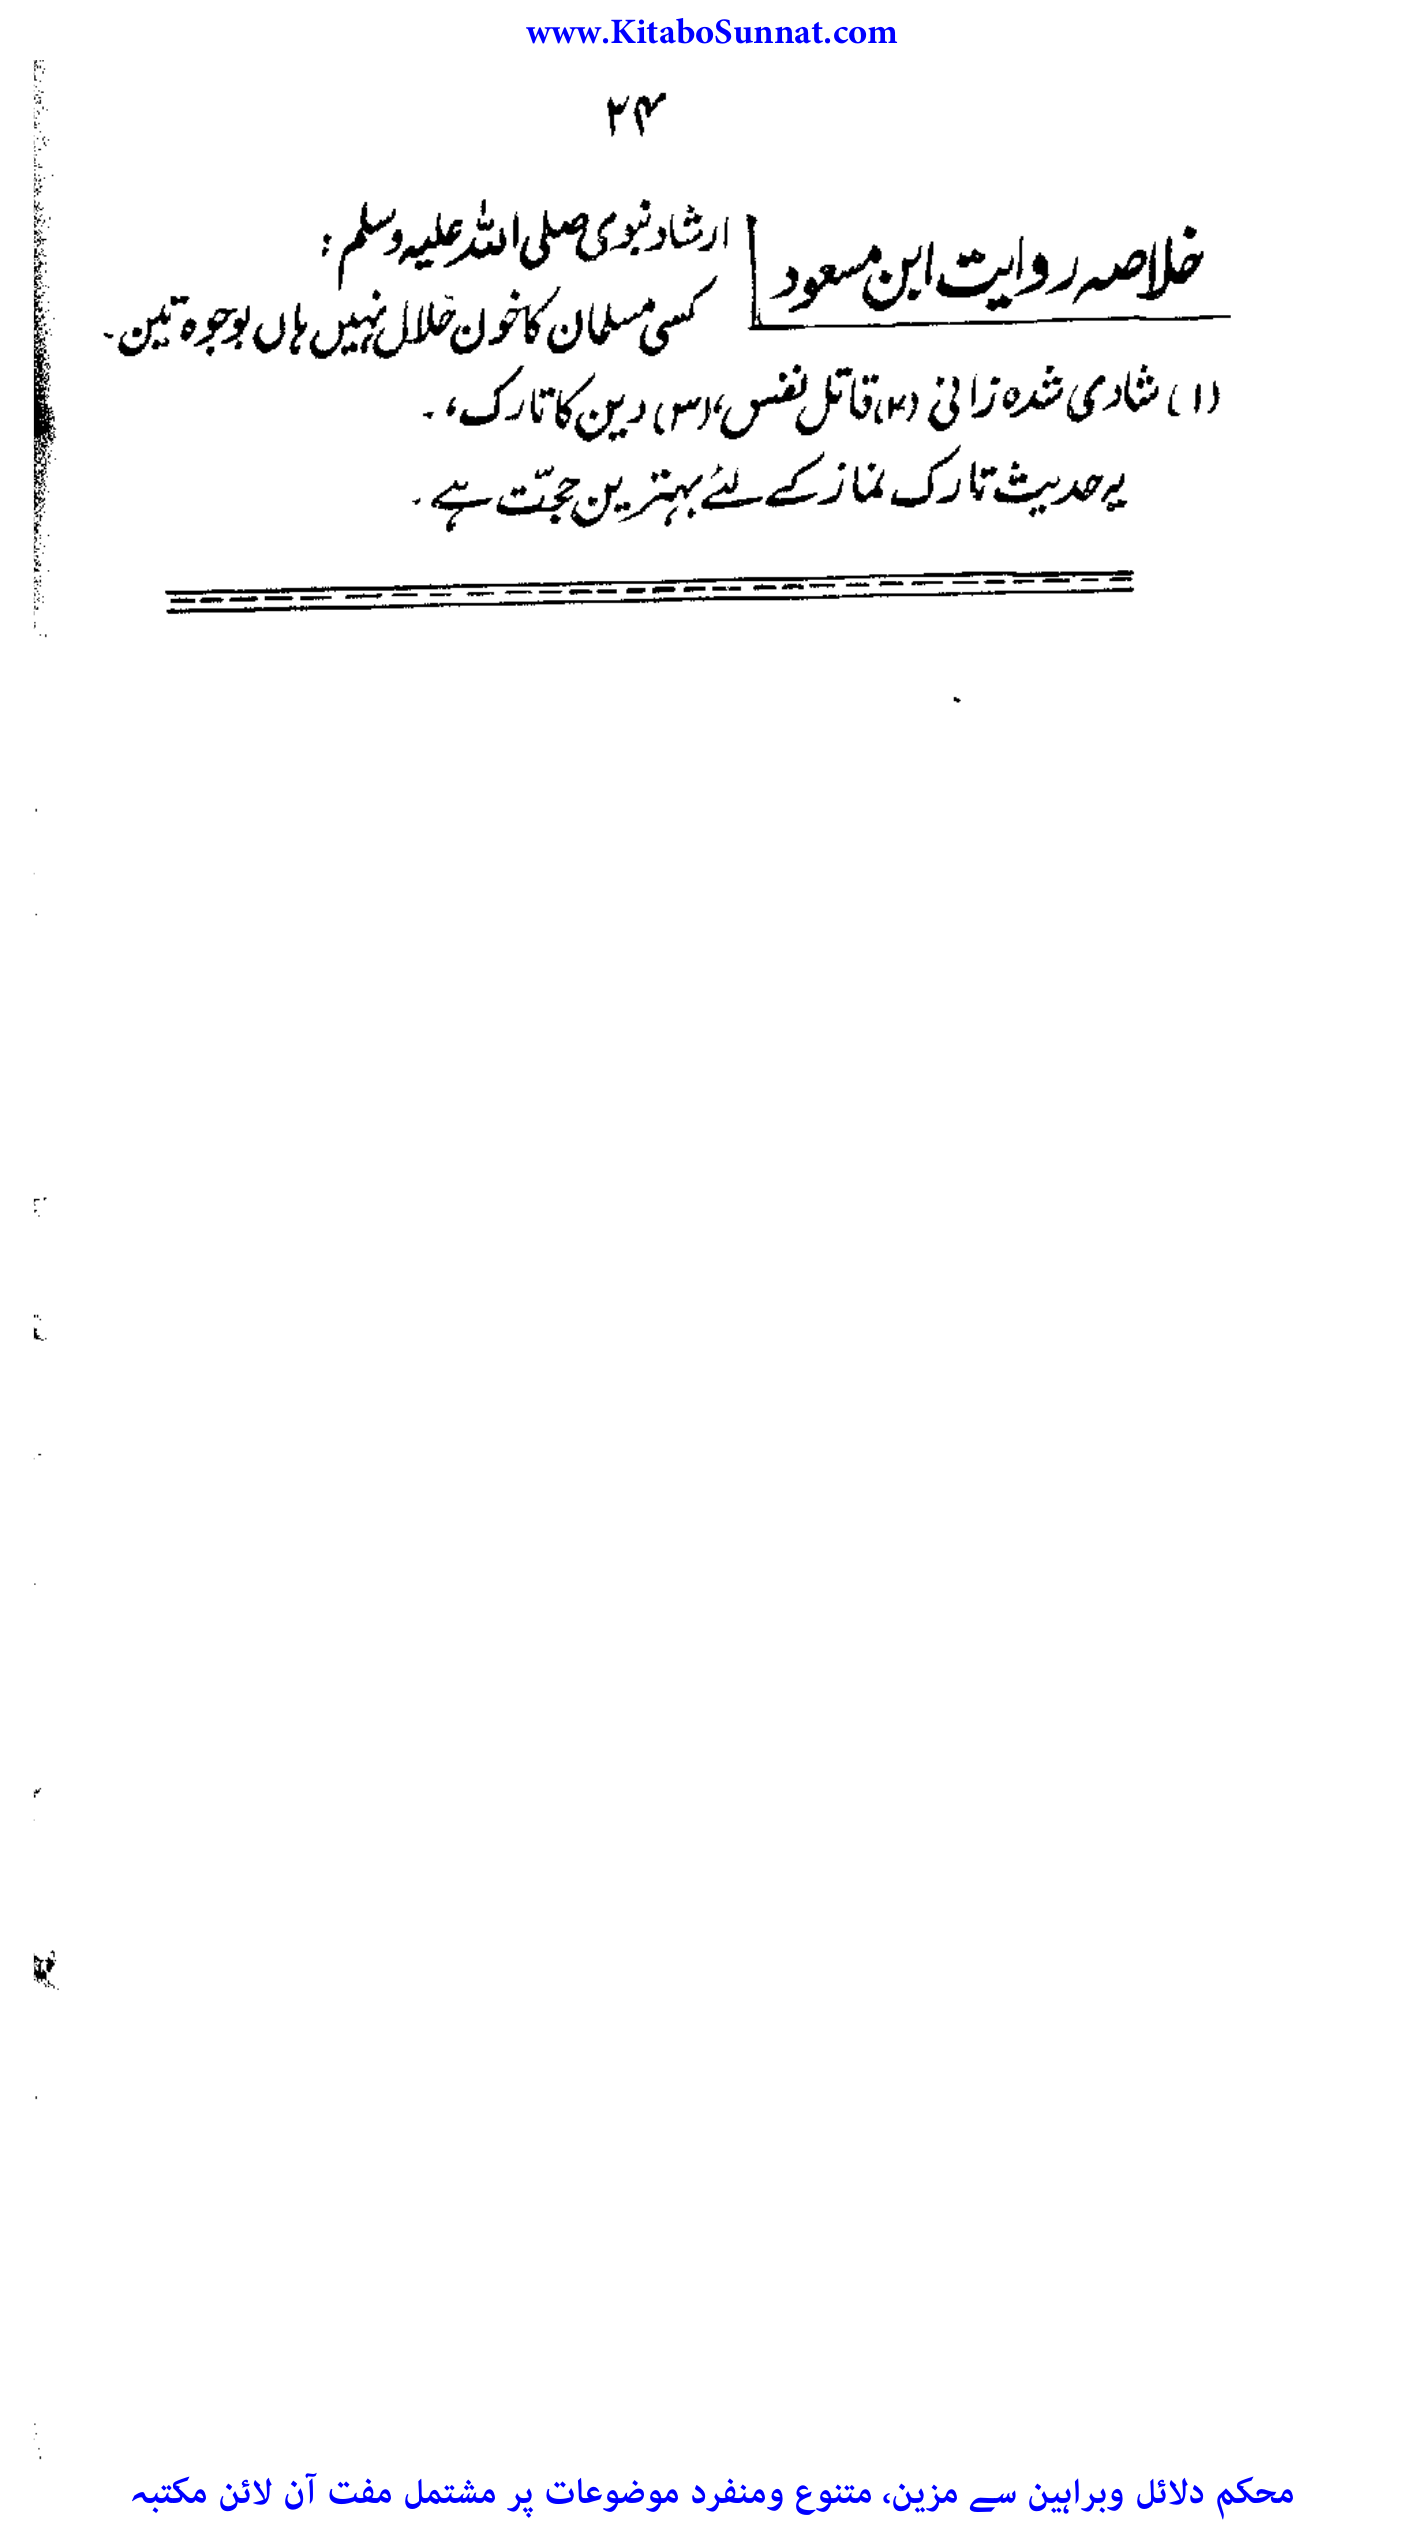 www.KitaboSunnat.com
۲۴
خلاصہ روایت ابن مسعود
ارشاد نبوی صلی اللہ علیہ وسلم :
کسی مسلمان کا خون حلال نہیں ہاں بوجوہ تین ۔
(۱) شادی شدہ زانی (۲) قاتل نفس، (۳) دین کا تارک، ۔
یہ حدیث تارک نماز کے لئے بہترین حجّت ہے ۔
محکم دلائل وبراہین سے مزین، متنوع ومنفرد موضوعات پر مشتمل مفت آن لائن مکتبہ